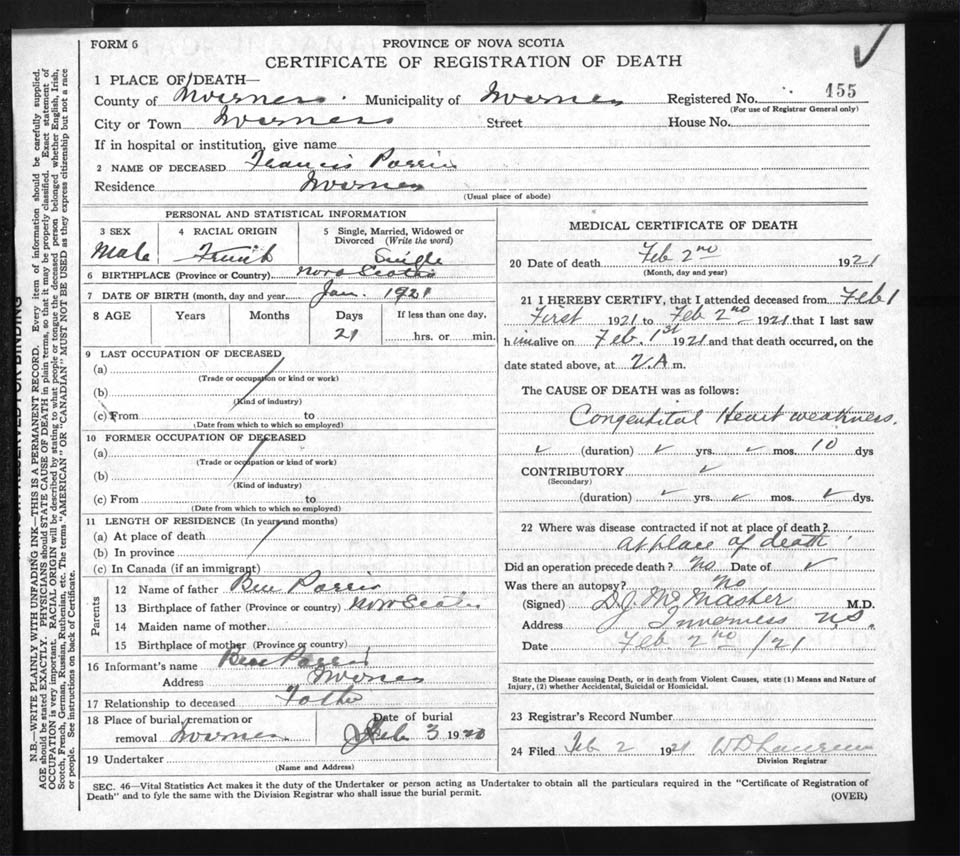 FORM 6
PROVINCE OF NOVA SCOTIA
CERTIFICATE OF REGISTRATION OF DEATH
1 PLACE OF DEATH—
County of Inverness. Municipality of Inverness Registered No. 455
(For use of Registrar General only)
City or Town Inverness Street House No.
If in hospital or institution, give name
2 NAME OF DECEASED Francis
Residence Inverness
(Usual place of abode)
PERSONAL AND STATISTICAL INFORMATION
3 SEX 4 RACIAL ORIGIN 5 Single, Married, Widowed or Divorced (Write the word)
Male French Single
6 BIRTHPLACE (Province or Country) Nova Scotia
7 DATE OF BIRTH (month, day and year) Jan. 1921
8 AGE Years Months Days If less than one day,
21 hrs. or min.
9 LAST OCCUPATION OF DECEASED
(a)
(Trade or occupation or kind or work)
(b)
(Kind of industry)
(c) From to
(Date from which to which so employed)
10 FORMER OCCUPATION OF DECEASED
(a)
(Trade or occupation or kind of work)
(b)
(Kind of industry)
(c) From to
(Date from which to which so employed)
11 LENGTH OF RESIDENCE (In years and months)
(a) At place of death
(b) In province
(c) In Canada (if an immigrant)
Parents
12 Name of father Ben
13 Birthplace of father (Province or country) Nova Scotia
14 Maiden name of mother
15 Birthplace of mother (Province or country)
16 Informant's name Ben
Address Inverness
17 Relationship to deceased Father
18 Place of burial, cremation or removal Inverness
Date of burial Feb 3 1920
19 Undertaker
(Name and Address)
MEDICAL CERTIFICATE OF DEATH
20 Date of death Feb 2nd 1921
(Month, day and year)
21 I HEREBY CERTIFY, that I attended deceased from Feb 1
First 1921 to Feb 2nd 1921 that I last saw
him alive on Feb. 1st 1921 and that death occurred, on the
date stated above, at A m.
The CAUSE OF DEATH was as follows:
Congenital Heart weakness.
✓ (duration) ✓ yrs. ✓ mos. 10 dys
CONTRIBUTORY ✓
(Secondary)
(duration) ✓ yrs. ✓ mos. ✓ dys.
22 Where was disease contracted if not at place of death?
At place of death
Did an operation precede death? No Date of ✓
Was there an autopsy? No
(Signed) D.J. McMaster M.D.
Address Inverness N.S.
Date Feb. 2nd /21
State the Disease causing Death, or in death from Violent Causes, state (1) Means and Nature of
Injury, (2) whether Accidental, Suicidal or Homicidal.
23 Registrar's Record Number
24 Filed Feb 2 1921 W D
Division Registrar
SEC. 46—Vital Statistics Act makes it the duty of the Undertaker or person acting as Undertaker to obtain all the particulars required in the "Certificate of Registration of
Death" and to fyle the same with the Division Registrar who shall issue the burial permit.
(OVER)
RESERVED FOR BINDING
N.B.—WRITE PLAINLY WITH UNFADING INK—THIS IS A PERMANENT RECORD. Every item of information should be carefully supplied.
AGE should be stated EXACTLY. PHYSICIANS should STATE CAUSE OF DEATH in plain terms, so that it may be properly classified. Exact statement of
OCCUPATION is very important. RACIAL ORIGIN will be described by stating to what people or tongue the deceased person belonged whether English, Irish,
Scotch, French, German, Russian, Ruthenian, etc. The terms "AMERICAN" or "CANADIAN" MUST NOT BE USED as they express citizenship but not a race
or people. See instructions on back of Certificate.